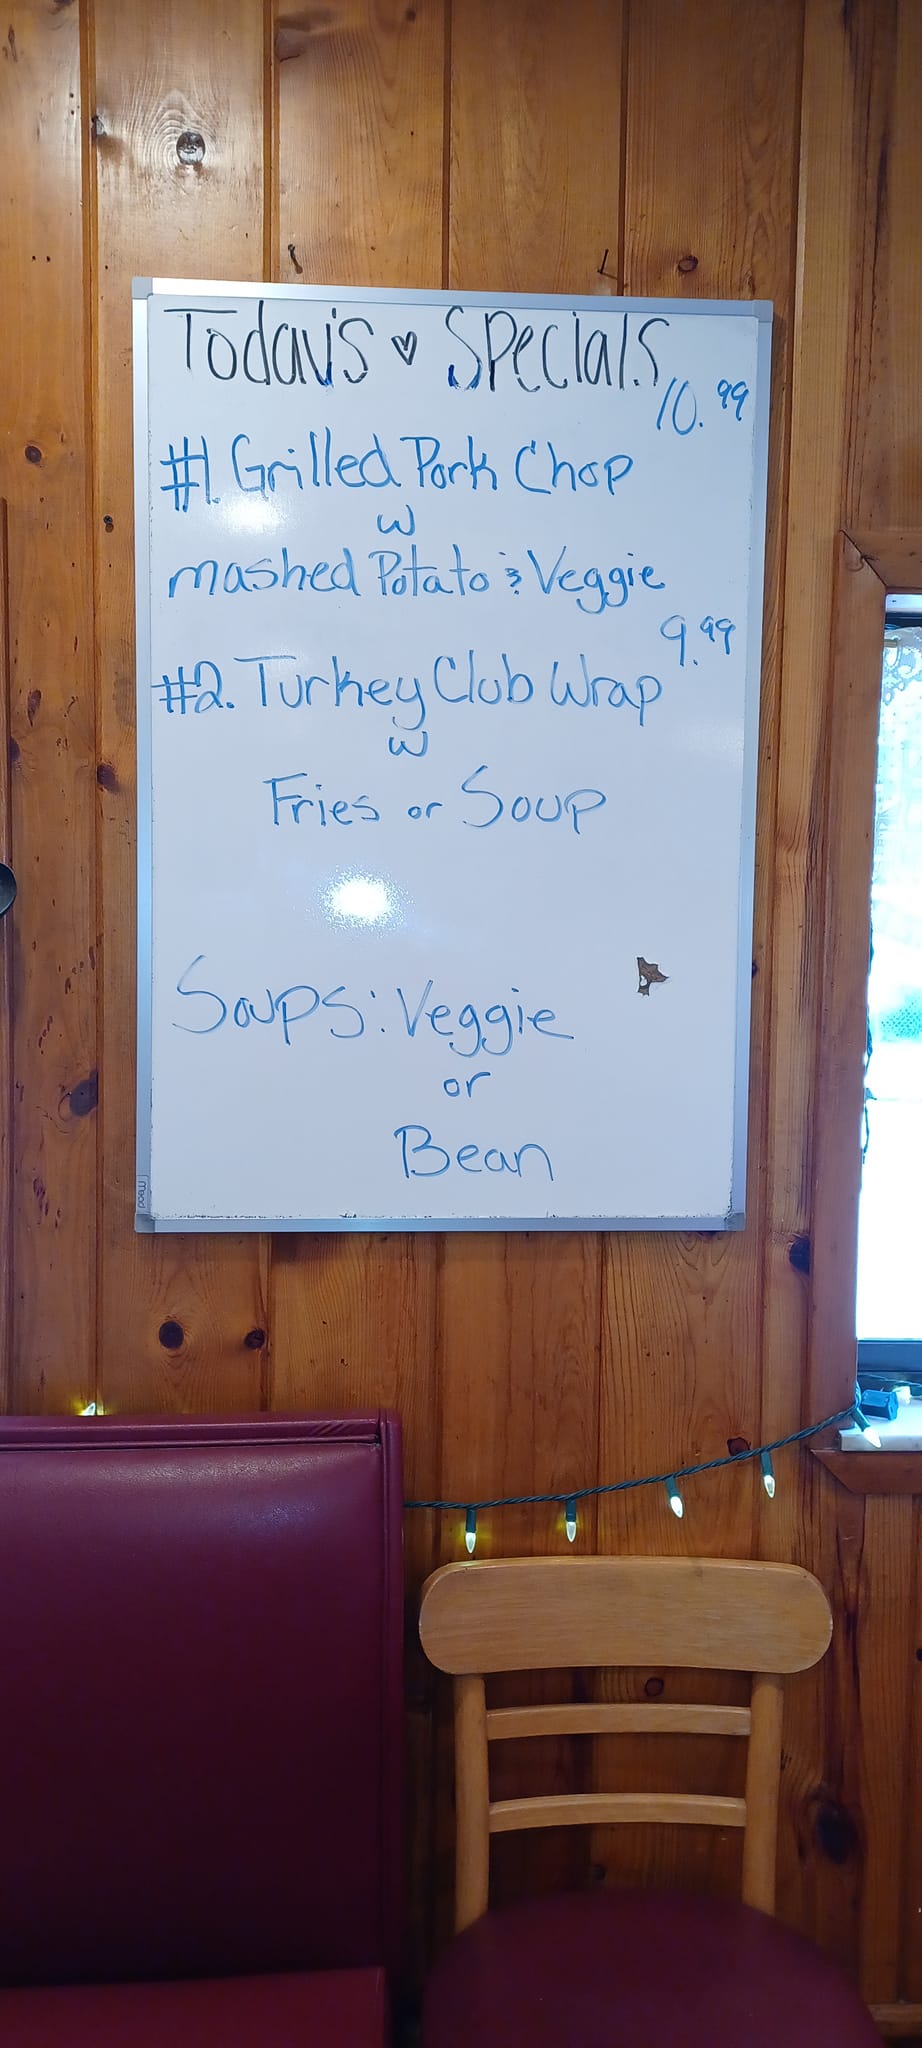 Today's ♥ Specials
10.99
#1. Grilled Pork Chop
w
mashed Potato & Veggie
9.99
#2. Turkey Club Wrap
w
Fries or Soup
Soups: Veggie
or
Bean
Mead